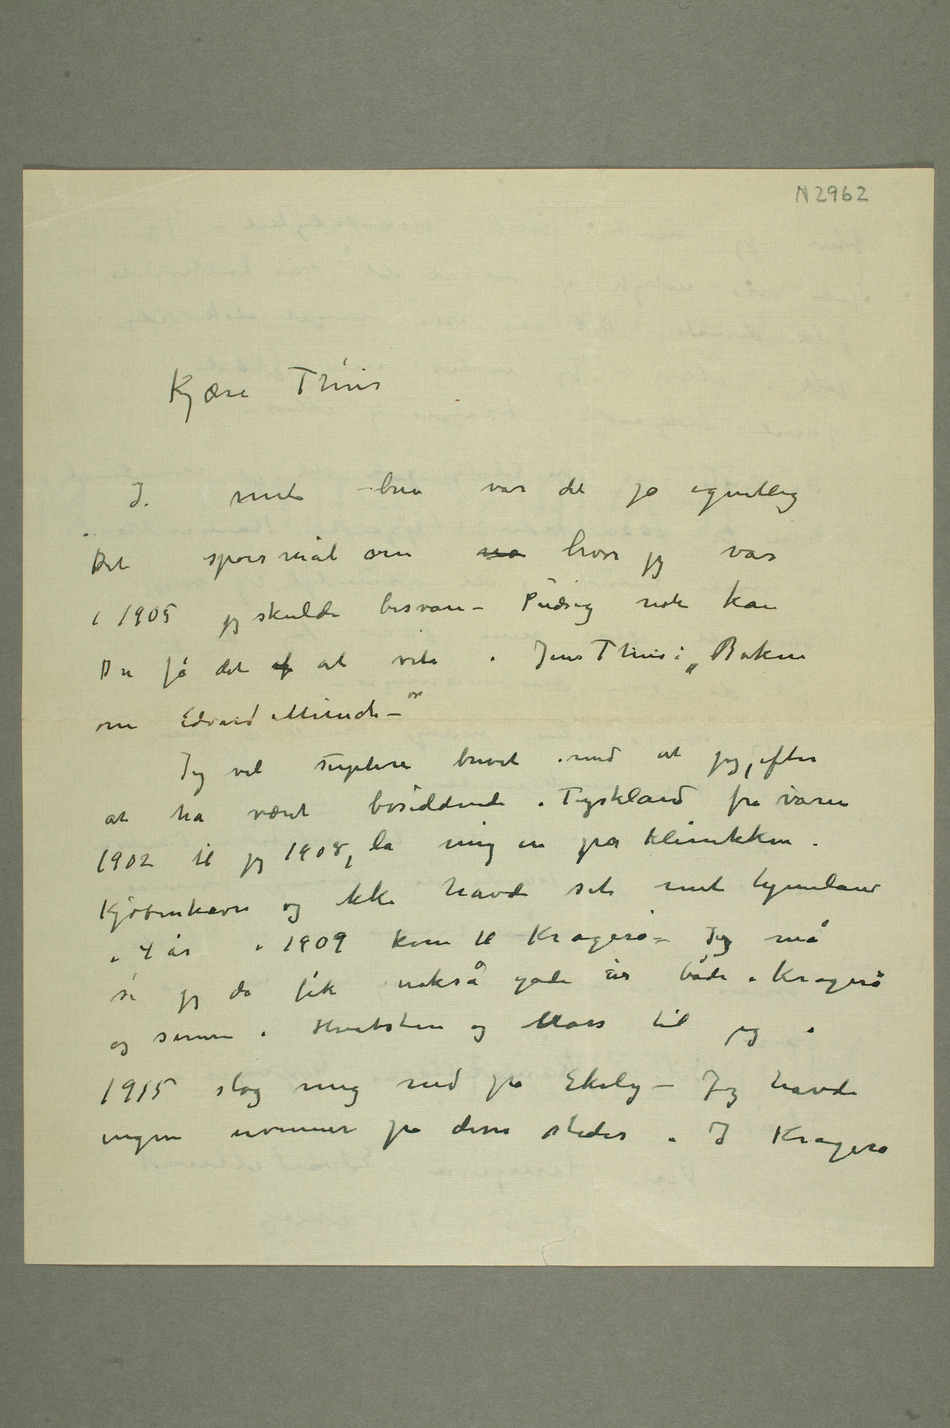 N 2962
Kjære Thiis
I mit brev var det jo egentlig
Det spørsmål om hvor jeg var
i 1905 jeg skulde besvare – Pudsig nok kan
Du få det at vite i Jens Thiis: „Boken
om Edvard Munch –"
Jeg vil suplere brevet med at jeg, efter
at ha været bosiddende i Tyskland fra våren
1902 til jeg 1908, la mig in på klinikken i
Kjøbenhavn og ikke havde set mit hjemland
i 4 år i 1909 kom til Kragerø – Jeg må
si jeg da fik nokså gode år både i Kragerø
og senere i Hvitsten og Moss til jeg i
1915 slog mig ned på Ekely – Jeg havde
ingen uvenner på disse steder. I Kragerø